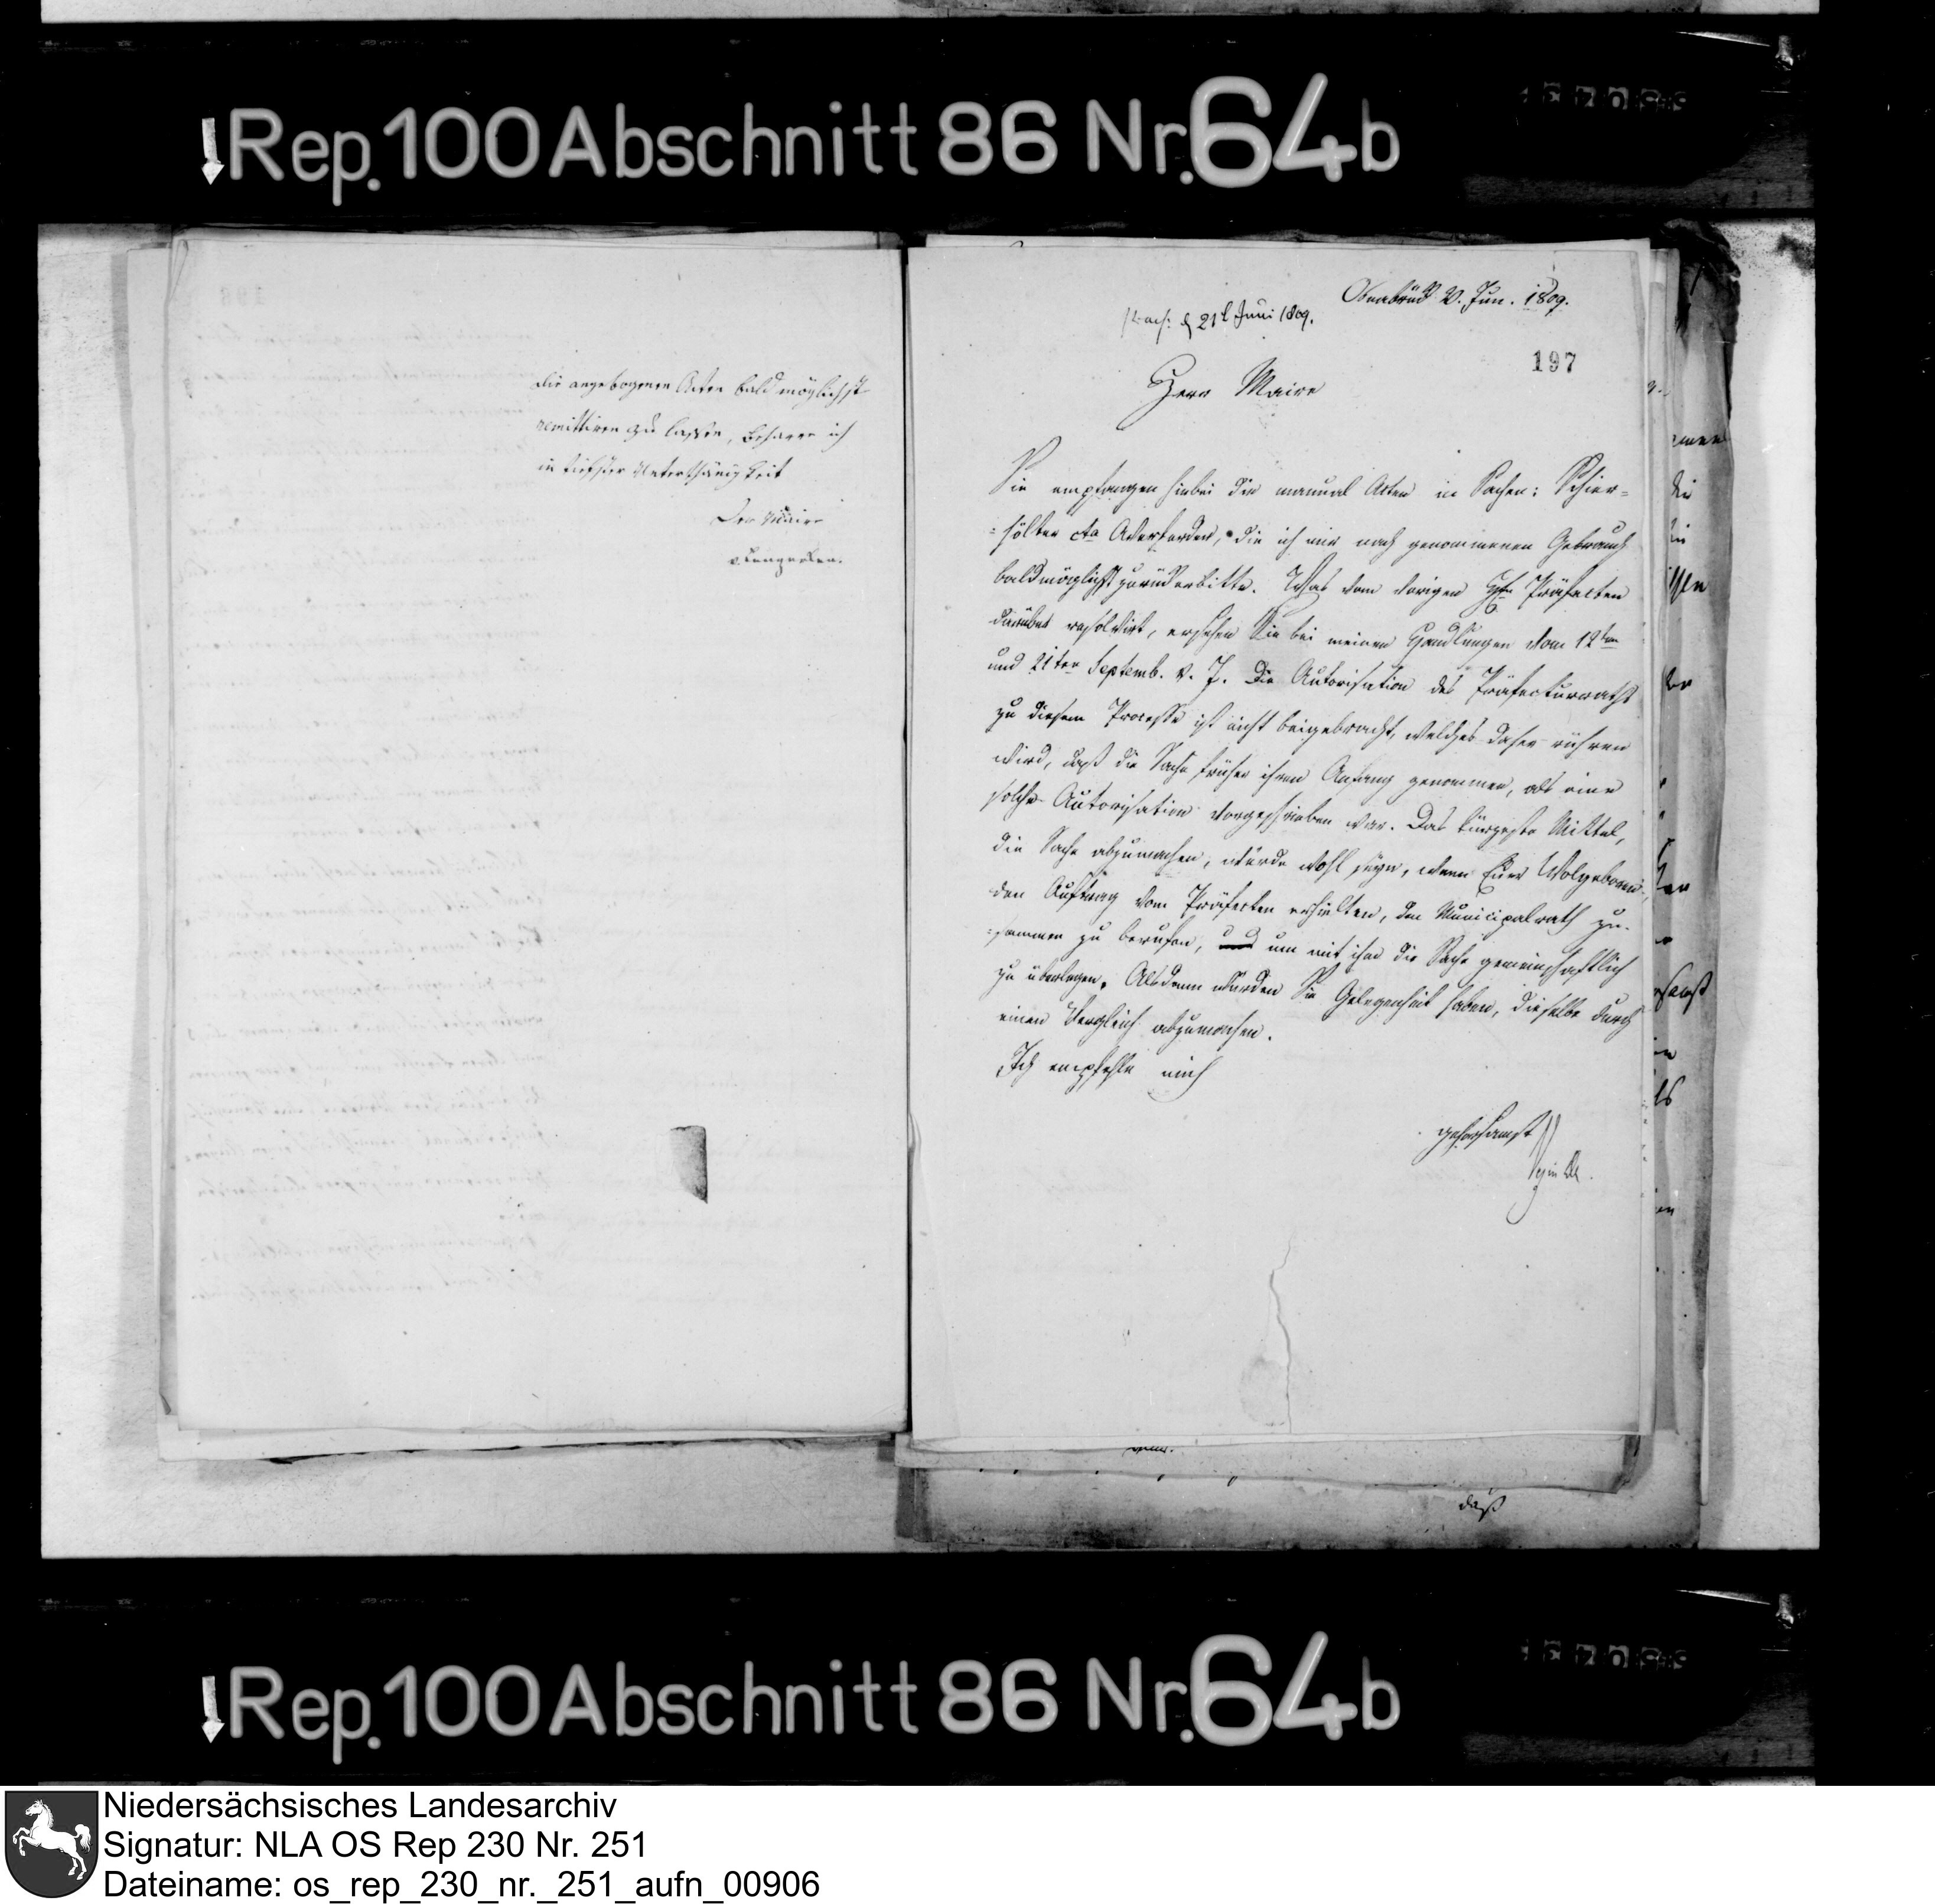 Rep. 100 Abschnitt 86 Nr. 64b
die angebogenen Acten baldmöglichst
remittiren zu lassen, beharre ich
in tiefster Unterthänigkeit
Der Maire
Osnabrück Jun. 1809.
21t Juni 1809.
197
Herr Maire
Sie empfangen hiebei die manual Acten in Sachen: Schier-
=hölter cta Averferden, die ich mir nach genommenen Gebrauch
baldmöglichst zurückerbitte. Was vom vorigen Hrn Präfecten
darüber resolvirt, ersehen Sie bei meinen Handlungen vom 12ten
und 21ten Septemb. v. J. Die Autorisation des Präfecturraths
zu diesem Processe ist nicht beigebracht, welches daher rühren
wird, daß die Sache früher ihren Anfang genommen, als eine
solche Autorisation vorgeschrieben war. Das kürzeste Mittel,
die Sache abzumachen, würde wohl seyn, wenn Euer Wolgeboren
den Auftrag vom Präfecten erhielten, den Municipalrath zu-
=sammen zu berufen, und um mit ihm die Sache gemeinschaftlich
zu überlegen. Alsdann würden Sie Gelegenheit haben, dieselbe durch
einen Vergleich abzumachen.
Ich empfehle mich
gehorsamst
daß
Rep. 100 Abschnitt 86 Nr. 64b
Niedersächsisches Landesarchiv
Signatur: NLA OS Rep 230 Nr. 251
Dateiname: os_rep_230_nr._251_aufn_00906